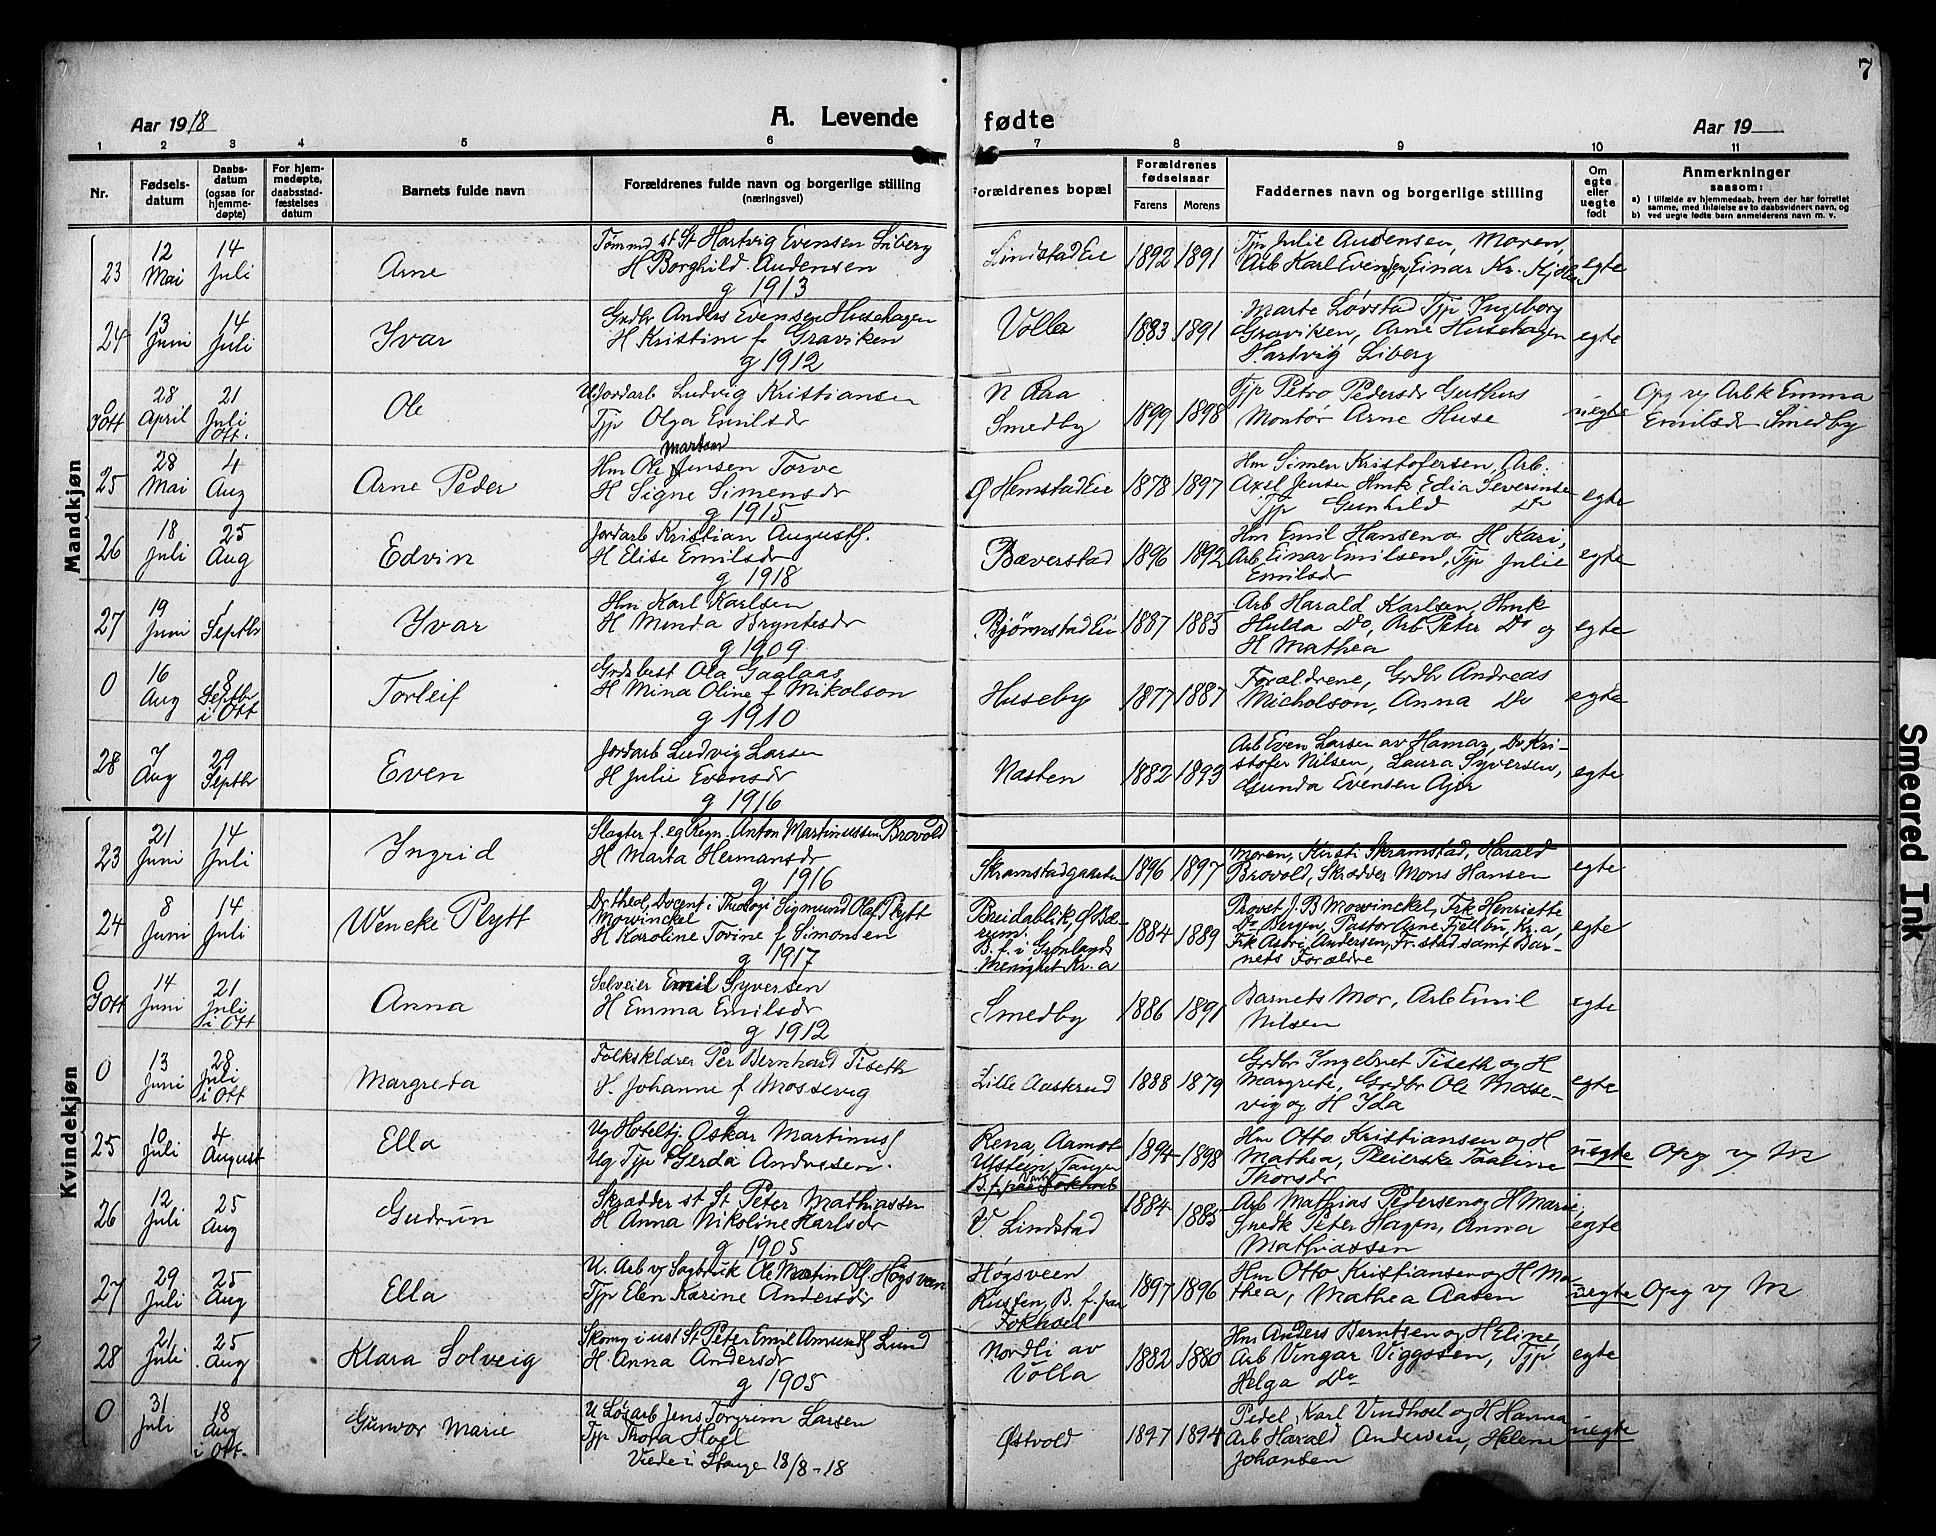 7
Aar 1918
A. Levende fødte
Aar 19
1 2 3 4 5 6 7 8 9 10 11
Nr.
Fødsels-
datum
Daabs-
datum
(ogsaa for
hjemme-
døpte)
For hjem-
medøpte,
daabsstad-
fæstelses
datum
Barnets fulde navn
Forældrenes fulde navn og borgerlige stilling
(næringsvei)
Forældrenes bopæl
Forældrenes
fødselsaar
Farens Morens
Faddernes navn og borgerlige stilling
Om
egte
eller
uegte
født
Anmerkninger
saasom:
a) I tilfælde av hjemmedaab, hvem der har forrettet
samme, med tilføielse av to daabsvidners navn, og
b) ved uegte fødte barn anmelderens navn m. v.
Mandkjøn
23 12 Mai 14 Juli Arne
Tømmd st St Hartvig Evensen Liberg
H Borghild Audensen
g 1913
Lindstad Eie 1892 1891
Tjp Julie Audensen, Moren,
Arb Karl Evensen, Einar Kr. egte
24 13 Juni 14 Juli Ivar
Grdbr Anders Evensen Husehagen
H Kristine f Graviken
g 1912
Volla 1883 1891
Marte Løvstad Tjp Ingeborg
Graviken, Arne Husehagen
Hartvig Liberg egte
i Ott 28 April 21 Juli Ott. Ole
U. Jordarb Ludvig Kristiansen
Tjp Olga Emilsdr
N Raa
Smedby 1899 1898
Tjp Petro Pedersdr Guthus
Montør Arne Huse uegte
Opg v Arbk Emma
Emilsdr Smedby
25 28 Mai 4 Aug Arne Peder
Martin
Hm Ole Jensen Torve
H Signe Simensdr
g 1915
Ø Hemstad Eie 1878 1897
Hm Simen Kristofersen, Arb.
Axel Jensen Hmk Edia Severinsen
Tjp Gunhild Do egte
26 18 Juli 25 Aug Edvin
Jordarb Kristian Augustf.
H Elise Emilsdr
g 1918
Bæverstad 1896 1892
Hm Emil Hansen og H Kari,
Arb Einar Emilsen, Tjp Julie
Emilsdr egte
27 19 Juni 1 Septbr Ivar
Hm Karl Karlsen
H Menda Bryntesdr
g 1909
Bjørnstad Eie 1887 1885
Arb Harald Karlsen, Hmk
Hulda Do, Arb Peter Do og
H Mathea egte
0 16 Aug 8 Septbr i Ott Torleif
Grdsbest Ola Gaalaas
H Mina Oline f Mikolson
g 1910
Huseby 1877 1887
Forældrene, Grdbr Andreas
Micholson, Anna Do egte
28 7 Aug 29 Septbr Even
Jordarb Ludvig Larsen
H Julie Evensdr
g 1916
Nasten 1882 1893
Arb Even Larsen av Hamar, Do Kri-
stofer Nilsen, Laura Syversen,
Gunda Evensen Ajer egte
Kvindekjøn
23 21 Juni 14 Juli Ingrid
Slagter f. eg Regn. Anton Martinussen Brovold
H Marta Hermansdr
g 1916
Skramstadgaarden 1896 1897
Moren, Kirsti Skramstad, Harald
Brovold, Skrædder Mons Hansen egte
24 8 Juni 14 Juli Wencke Plytt
Dr theol, Docent i Theologi Sigmund Olaf Plytt
Mowinckel
H Karoline Tovine f Simonsen
g 1917
Breidablik, Ø Bæ-
rum.
B. f. i Grønlands
Menighet Kr. a 1884 1889
Provst J. B Mowinckel, Frk Henriette
Do Bergen, Pastor Arne Fjellbu, Kr. a,
Frk Astri Andersen, Fr. stad samt Bar-
nets Forældre egte
G Ott 14 Juni 21 Juli i Ott Anna
Selveier Emil Syversen
H Emma Emilsdr
g 1912
Smedby 1886 1891
Barnets Mor, Arb Emil
Nilsen egte
0 13 Juni 28 Juli i Ott Margreta
Folkskl Per Bernhard Tiseth
H. Johanne f Mossevig
g
Lille Aaskrud 1888 1879
Grdbr Ingebret Tiseth og H
Margrete, Grdbr Ole Mosse-
vig og H Ida egte
25 10 Juli 4 August Ella
Ug Hotelbj. Oskar Martinusf
Ug Tjp Gerda Andresen.
Rena, Aamot
Ulstein, Tangen
B. f. paa Fokhoel 1894 1898
Hm Otto Kristiansen og H
Mathea, Pleierske Taaline
Thorsdr uegte Opg v M
26 12 Juli 25 Aug Gudrun
Skrædder st St Peter Mathiassen
H Anna Nikoline Karlsdr
g 1905
V. Lindstad 1884 1885
Arb Mathias Pedersen og H Marie,
Snedk Peter Hagen, Anna
Mathiassen egte
27 29 Juli 25 Aug Ella
U. Arb v Sagbruk Ole Martin Olf. Høgsveen
Tjp Elen Karine Andersdr
Høgsveen
Rusten, B. f. paa
Fokhoel 1897 1896
Hm Otto Kristiansen og H Ma-
thea, Mathea Aasen uegte Opg v M
28 21 Juli 25 Aug Klara Solveig
Skomg i ust St Peter Emil Amundf Lund
H Anna Andersdr
g 1905
Nordli av
Volla 1882 1880
Hm Anders Berntsen og H Eline,
Arb Vingar Viggosen, Tjp
Helga Do egte
0 31 Juli 18 Aug i Ott Gunvor Marie
U Løsarb Jens Torgrim Larsen
Tjp Thora Hoel
Viede i Stange 18/8-18
Østvold 1897 1894
Pedel Karl Vindhoel og H Hanna
Arb Harald Andersen, Helene
Johansen uegte
Smeared Ink